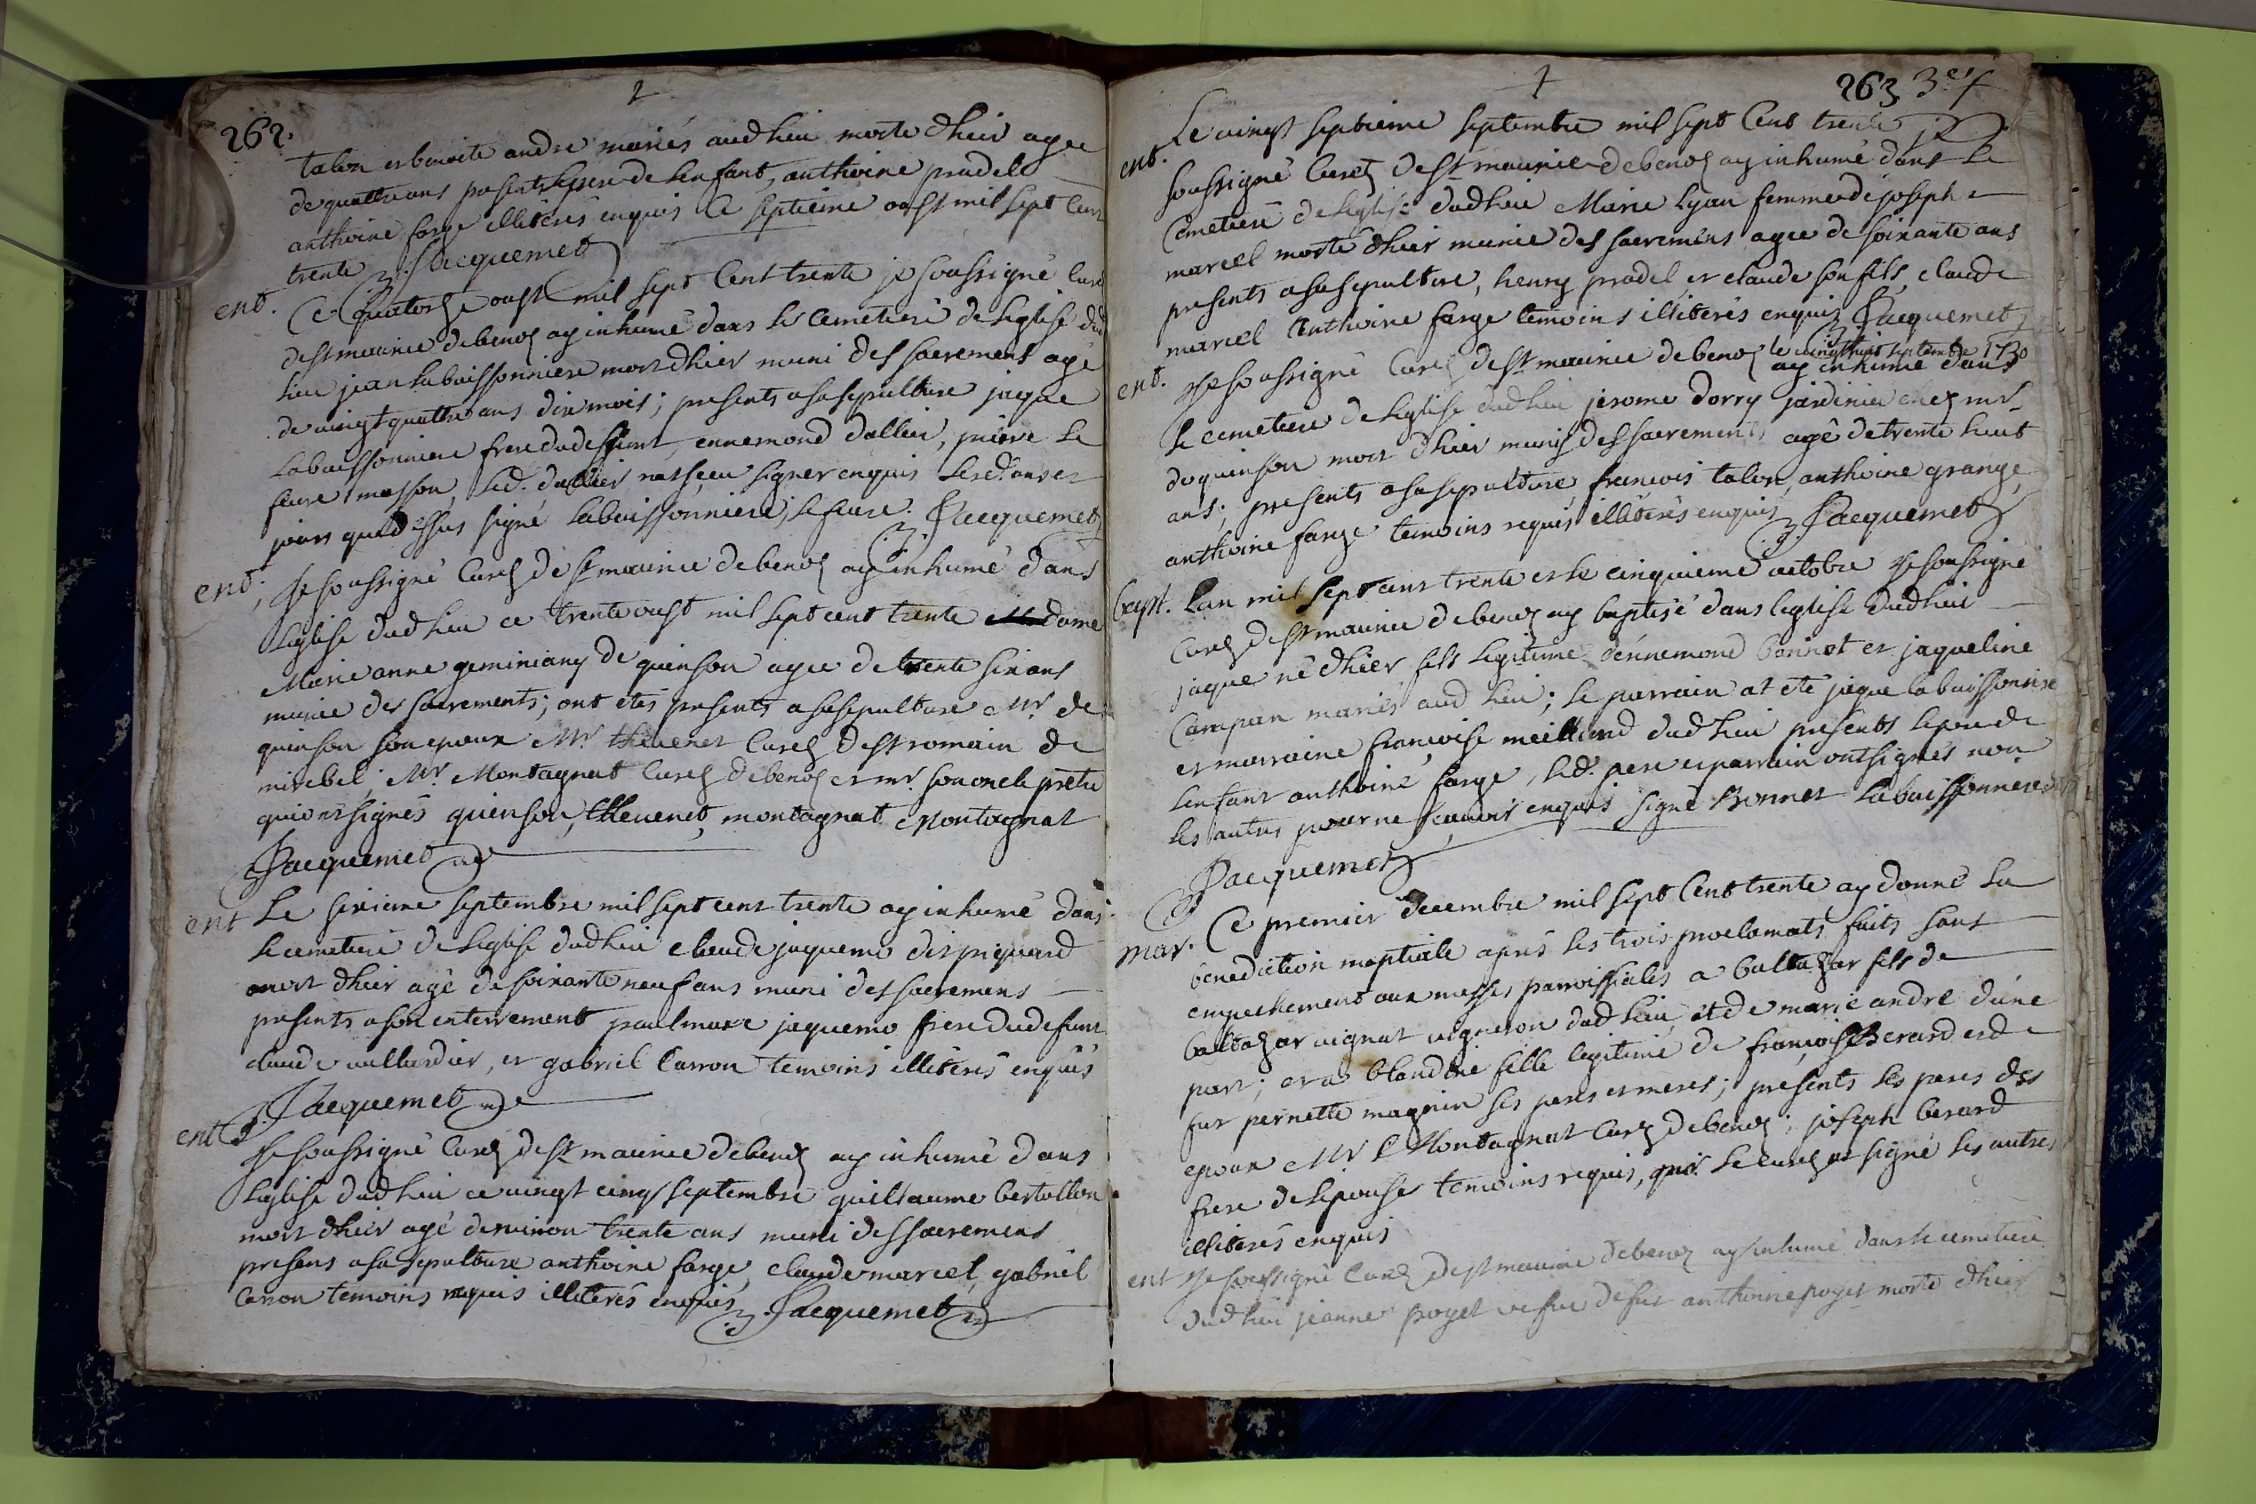 262.
talon et benoite andre mariés aud lieu morte dhier agee
de quattre ans presents le pere de lenfant, anthoine pradel
anthoine farge illiterés enquis ce septieme oust mil sept cent
trente Jacquemet
ent. Ce quatorze oust mil sept Cent trente je soussigné Curé
de st maurice de benoz ay inhumé dans le Cemetiere de leglise dud
lieu jean labuissonniere mort dhier muni des sacrements agé
de vingt quattre ans dix mois; presents a sa sepulture jaque
labuissonniere frere dud deffunt, ennemond dallier, pierre le
feure masson, led. dallier na sçeu signer enquis les d. an et
jour que dessus signé labuissonniere, lefeure. Jacquemet
ent; Je soussigné Curé de st maurice de benoz ay inhumé dans
leglise dud lieu ce trente oust mil sept cent trente dame
Marie anne geminiany de quinson agee de trente six ans
munie des sacrements; ont étés presents a sa sepulture Mr. de
quinson son epoux Mr. thevenet Curé de st romain de
miribel, Mr. Montagnat Curé de benoz et mr. son oncle prêtre
qui ont signés quinson, thevenet, montagnat Montagnat
Jacquemet
ent Le sixieme septembre mil sept cent trente ay inhumé dans
le cemetiere de leglise dud lieu claude jaquemo dit piquard
mort dhier agé de soixante neuf ans muni des sacremens
presents a son enterrement paul marc jaquemo frere dud defunt
claude vullardier, et gabriel Carron temoins illiterés enquis
Jacquemet
ent Je soussigné Curé de st maurice de benoz ay inhumé dans
leglise dud lieu ce vingt cinq septembre guillaume bertollon
mort dhier agé denviron trente ans muni des sacremens
presens a sa sepulture anthoine farge, claude marcel, gabriel
Carron temoins requis illiterés enquis Jacquemet
263
ent. Le vingt septieme septembre mil sept Cent trente je
soussigné Curé de st maurice de benoz ay inhumé dans le
Cemetiere de leglise dud lieu Marie Lyan femme de joseph
marcel morte dhier munie des sacremens agee de soixante ans
presents a sa sepulture, henry pradel et claude son fils, claude
marcel anthoine farge temoins illiterés enquis Jacquemet
le vingt huit septembre 1730
ent. Je soussigné Curé de st maurice de benoz ay inhumé dans
le cemetiere de leglise dud lieu jerome dorry jardinier chez mr.
de quinson mort dhier munis des sacrements agé de trente huit
ans; presents a sa sepulture francois talon, anthoine grange,
anthoine farge temoins requis illiterés enquis Jacquemet
bapt. Lan mil sept cent trente et le cinquieme octobre Je soussigné
Curé de st maurice de benoz ay baptisé dans leglise dud lieu
jaque né dhier fils legitime dennemond bonnet et jaqueline
Campan mariés aud lieu; le parrain at eté jaque labuissonniere
et marraine françoise meilland dud lieu presents le pere de
lenfant anthoine farge, led. pere et parrain ont signés non
les autres pour ne scavoir enquis signé Bonnet labuissonniere
Jacquemet
mar. Ce premier decembre mil sept Cent trente ay donné la
benediction nuptiale aprés les trois proclamats faits sans
empechement aux messes parroissiales a baltazar fils de
baltazar vignat vigneron dud lieu et de marie andré dune
part; et a blandine fille legitime de françois Berard et de
fut pernette magnin ses peres et meres; presents les peres des
epoux Mr Montagnat Curé de benoz; joseph berard
frere de lepouse temoins requis, led. Sr. le curé at signé les autres
illiterés enquis
ent Je soussigné Curé de st maurice de benoz ay inhumé dans le cemetiere
dud lieu jeanne poyet vefve de fut anthoine poyet morte dhier